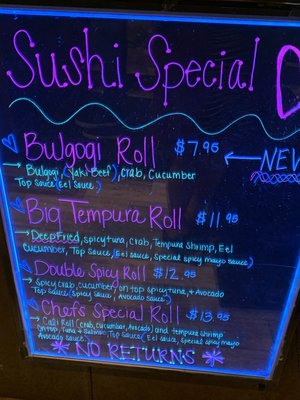 Sushi Special
Bulgogi Roll $7.95
NEW
→ Bulgogi (Yaki Beef), Crab, Cucumber
Top Sauce (Eel Sauce)
Big Tempura Roll $11.95
→ Deep Fried, spicy tuna, Crab, Tempura Shrimp, Eel
Cucumber, Top Sauce (Eel sauce, special spicy mayo sauce)
Double Spicy Roll $12.95
Spicy crab, cucumber / on top spicy tuna, + Avocado
Top sauce (spicy sauce, Avocado sauce)
Chef's Special Roll $13.95
→ Cali Roll (crab, cucumber, Avocado) and tempura shrimp
on top, Tuna + Salmon, Top Sauce (Eel sauce, special spicy mayo
Avocado sauce)
* NO RETURNS *